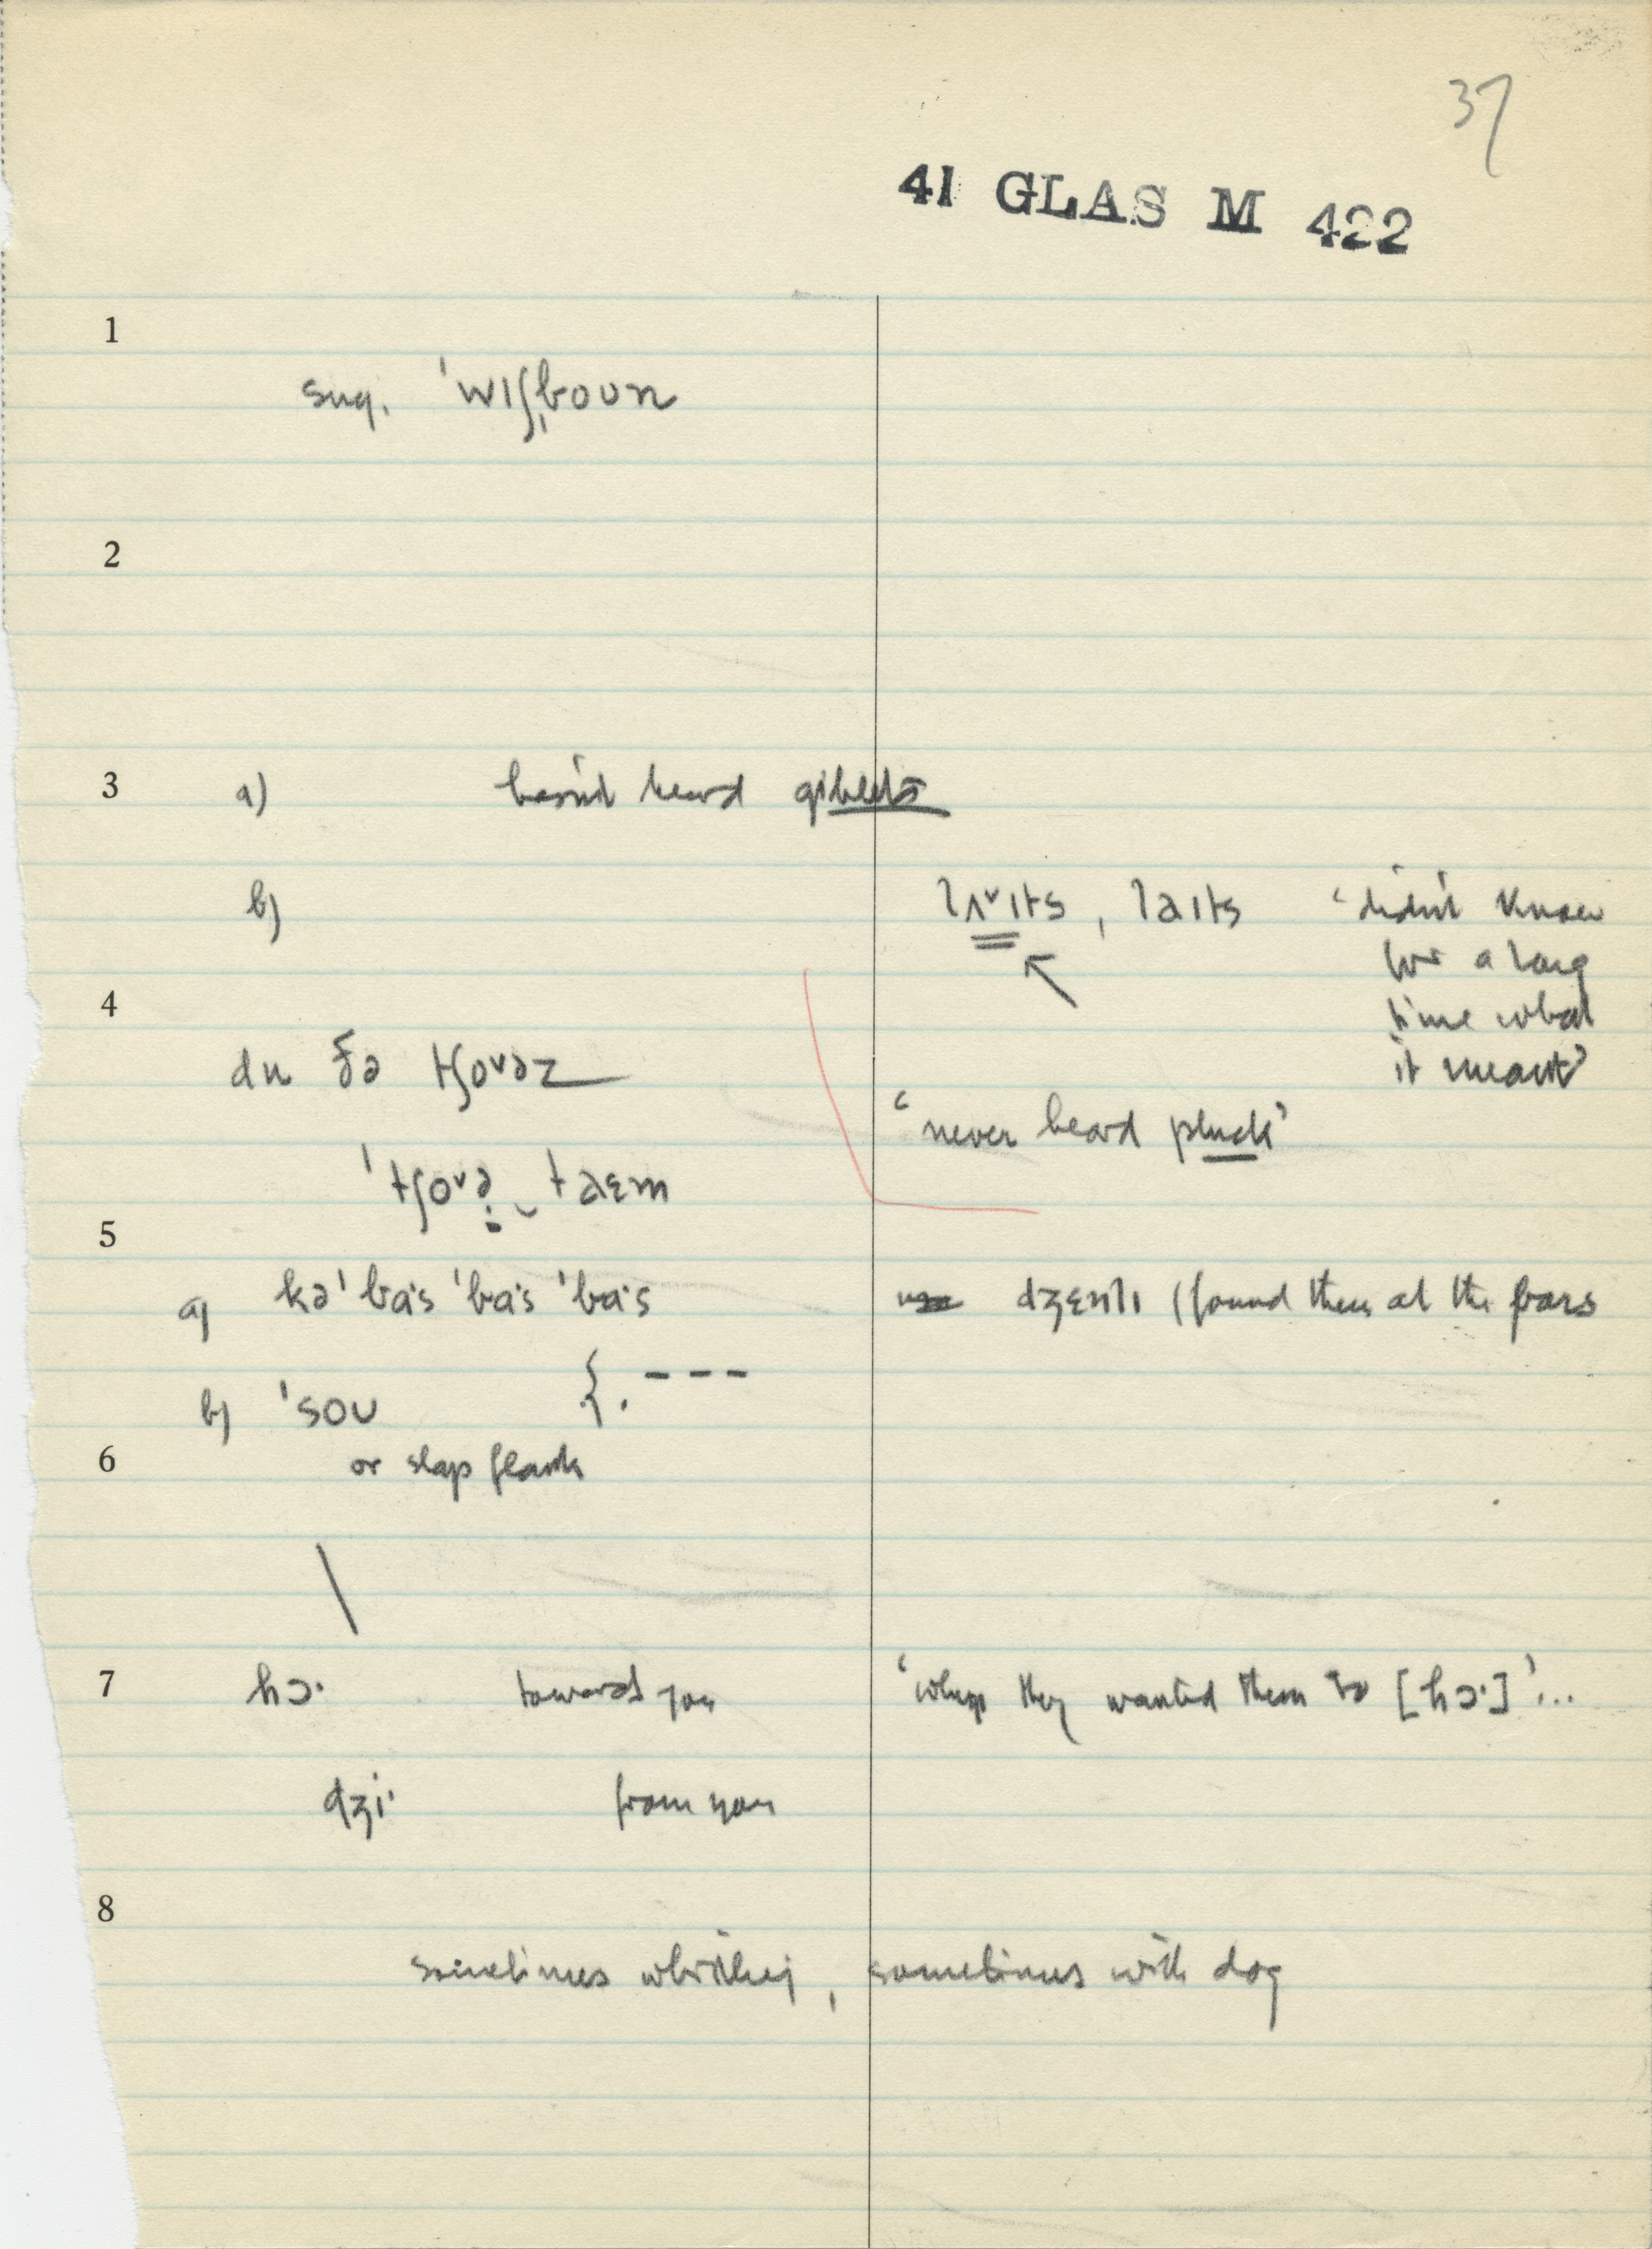 37
41 GLAS M 422
1
sug. ˈwɪʃˌboʊn
2
3 a) hasn't heard giblets
b) lʌ˅ɪts, laɪts 'didn't know
for a long
time what
it meant'
4
du ðə tʃo˅əz
'never heard pluck'
ˈtʃo˅ə taɛm
5
a) kəˈba·s ˈba·s ˈba·s dʒɛnlɪ (found them at the bars
b) ˈsoʊ {. ---
6 or slap flank
7 hɔ· toward you 'when they wanted them to [hɔ·]'...
dʒi· from you
8
sometimes whistling, sometimes with dog